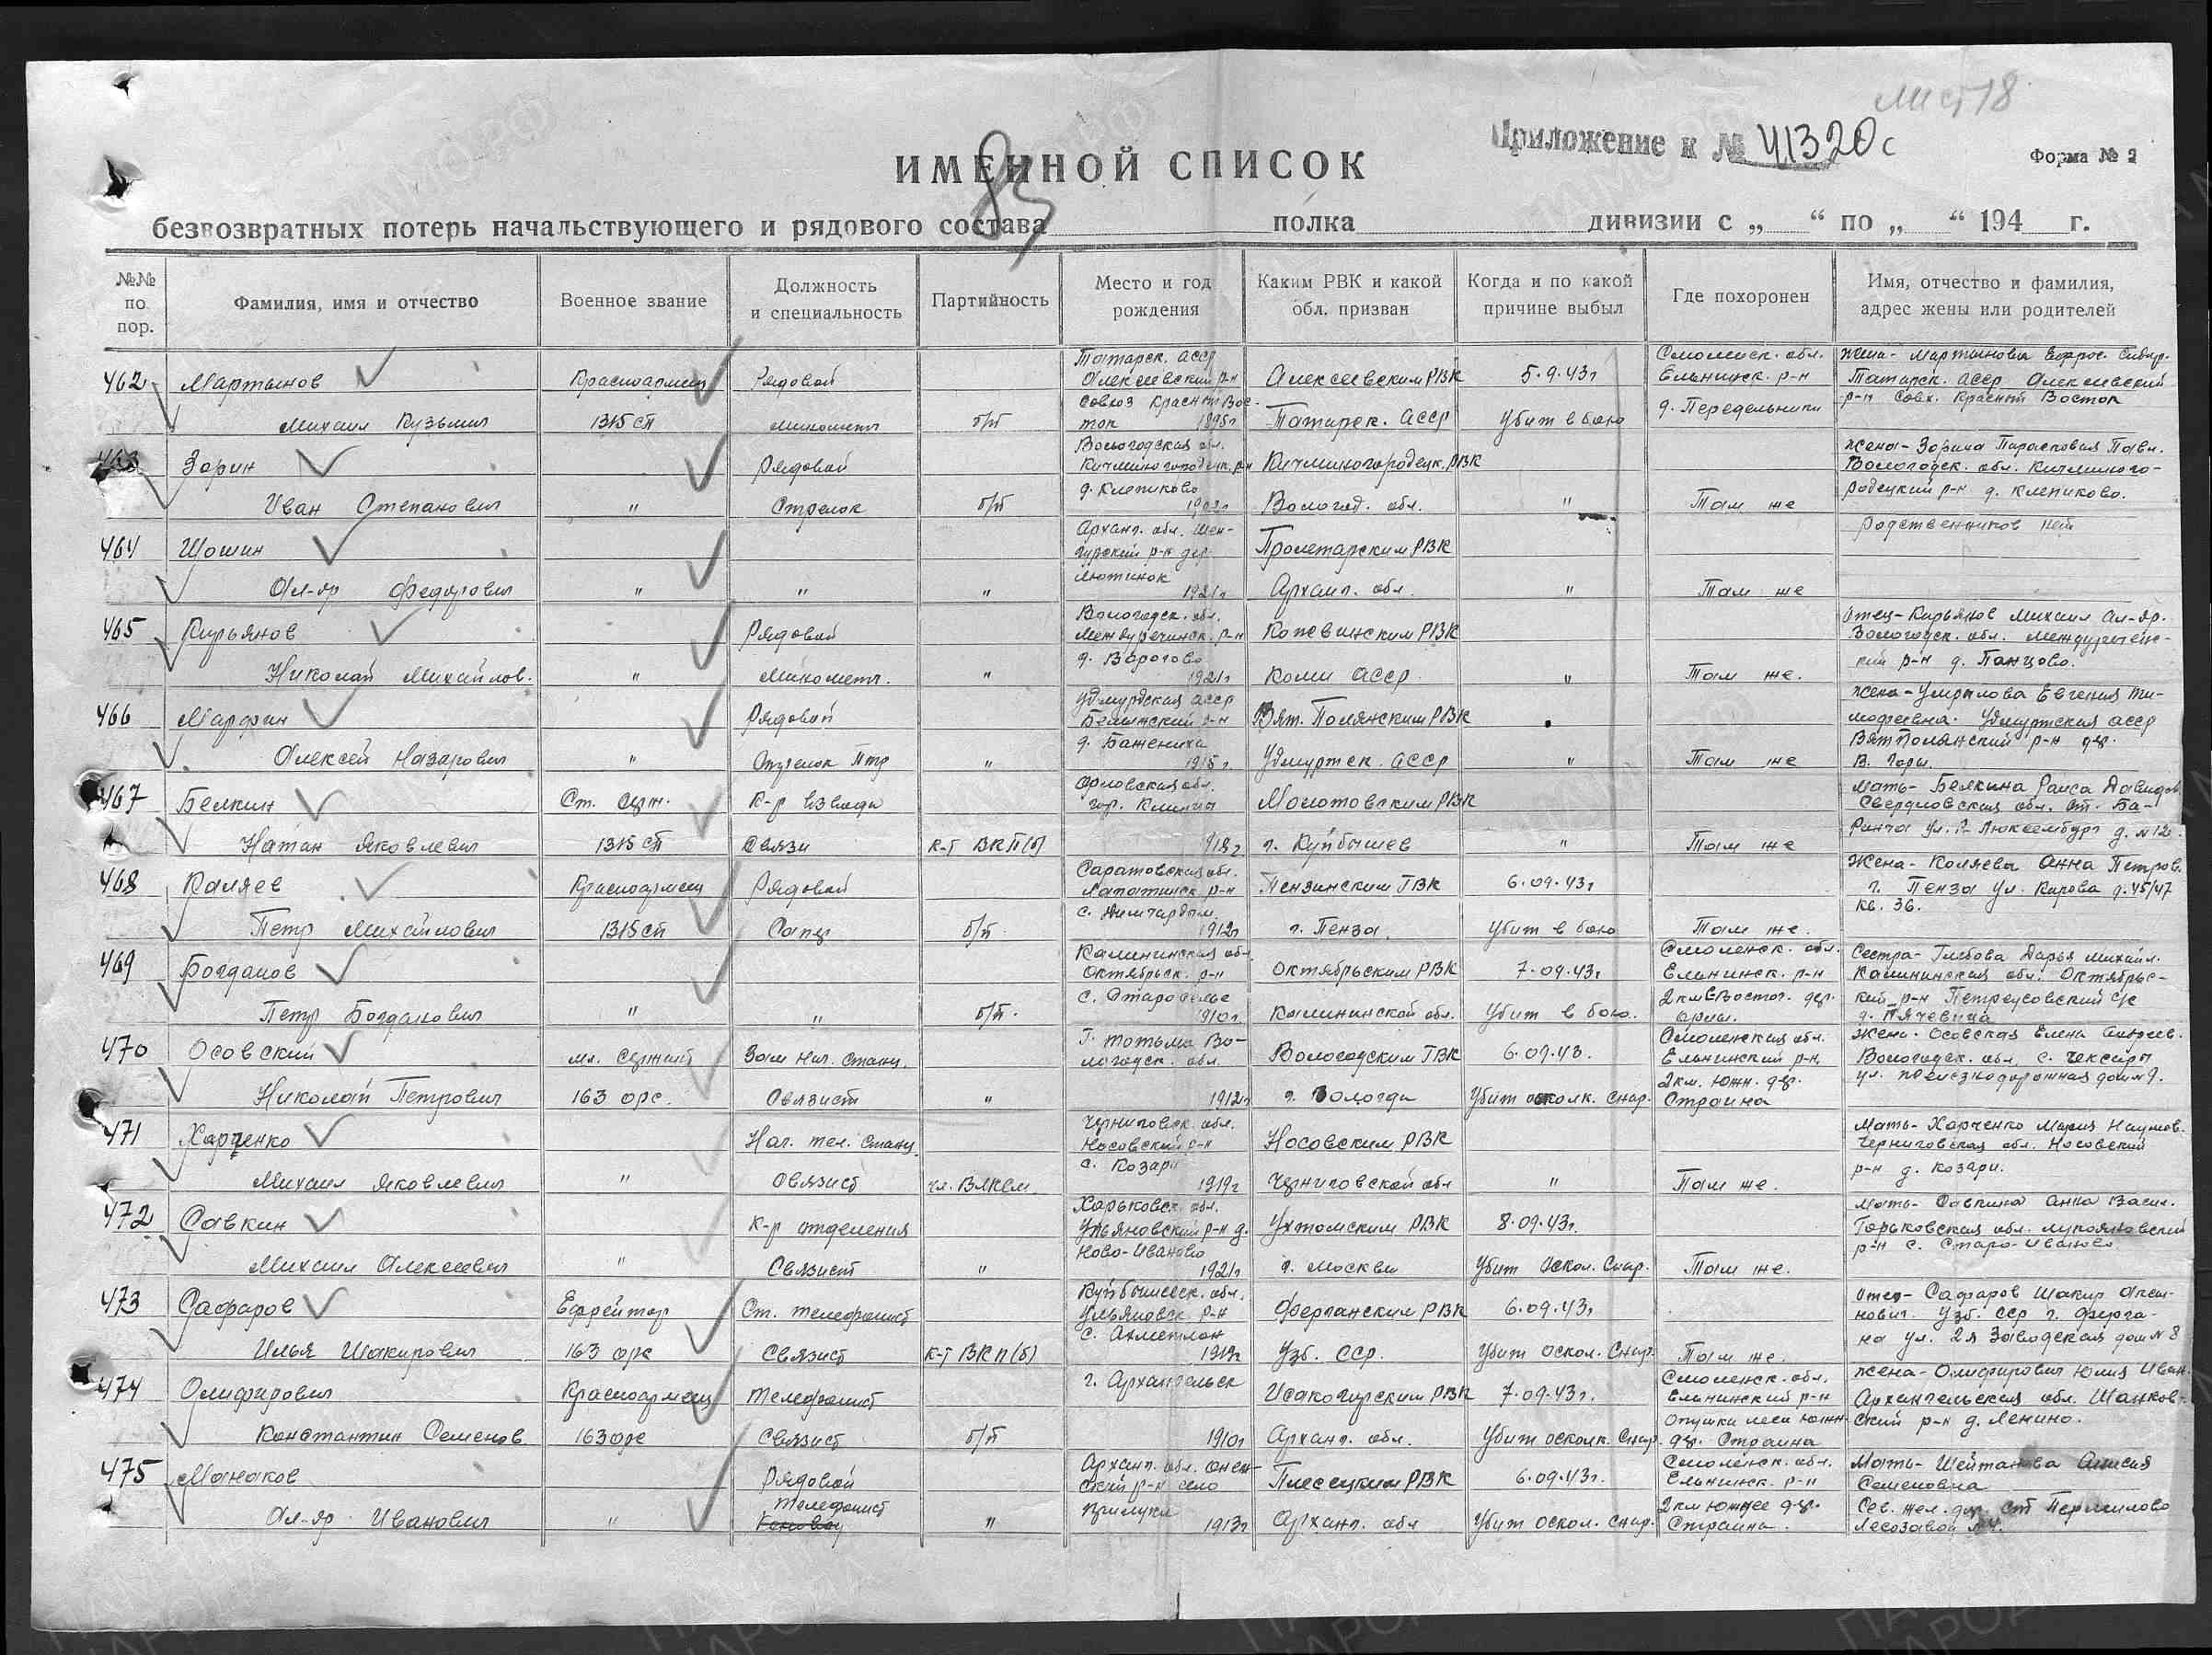 Лист 18
Приложение к № 41320с
Форма № 2
ИМЕННОЙ СПИСОК
85
безвозвратных потерь начальствующего и рядового состава полка дивизии с „ “ по „ “ 194 г.
№№ по пор.
Фамилия, имя и отчество
Военное звание
Должность и специальность
Партийность
Место и год рождения
Каким РВК и какой обл. призван
Когда и по какой причине выбыл
Где похоронен
Имя, отчество и фамилия, адрес жены или родителей
462 Мартынов Красноармеец Рядовой Татарск. АССР Алексеевский р-н Алексеевским РВК 5.9.43г Смоленск. обл. Ельнинск. р-н Жена - Мартынова Татарск. АССР Алексеевский
Михаил Кузьмич 1315 сп миномётч б/п совхоз Красный Восток 1895г Татарск. АССР Убит в бою д. Передельники р-н совх. Красный Восток
463 Зорин Рядовой Вологодская обл. Кичминогородецк. р-н Кичминогородецк. РВК Жена - Зорина Парасковия Павл. Вологодск. обл. Кичминого-
Иван Степанович " Стрелок б/п д. Клепиково Вологод. обл. " Там же родецкий р-н д. Клепиково.
464 Шошин Арханг. обл. Шен-курский р-н дер. Пролетарским РВК Родственников нет
Ал-др Федорович " " " Лютинок 1921г Арханг. обл. " Там же
465 Кирьянов Рядовой Вологодск. обл. Междуреченск. р-н РВК Отец - Кирьянов Михаил Ал-др. Вологодск. обл. Междуречен-
Николай Михайлов. " Минометч. " д. Ворогово 1921г Коми АССР " Там же. ский р-н д. Панцово.
466 Марфин Рядовой Удмурдская АССР р-н Вят. Полянским РВК Жена - Евгения Ти-мофеевна. Удмуртская АССР
Алексей Назарович " Стрелок Птр " д. Баженика 1915г. Удмуртск. АССР " Там же ВятПолянский р-н дер. В. Горы.
467 Белкин Ст. серж. К-р взвода Орловская обл. гор. Клинцы Молотовским РВК Мать - Белкина Раиса Давидов. Свердловская обл. ст. Ба-
Натан Яковлевич 1315 сп Связи к-т ВКП(б) 1918г г. Куйбышев " Там же ранча ул. Р. Люксембург д. № 12.
468 Каляев Красноармеец Рядовой Саратовская обл. Лапатинск р-н Пензинским ГВК 6.09.43г Жена - Каляева Анна Петров. г. Пенза ул. Кирова д. 45/47
Петр Михайлович 1315 сп Сапер б/п. 1912г г. Пенза Убит в бою Там же. кв. 36.
469 Богданов Калининская обл. Октябрьск. р-н Октябрьским РВК 7.09.43г Смоленск. обл. Ельнинск. р-н Сестра - Глебова Дарья Михайл. Калининская обл. Октябрьс-
Петр Богданович " " б/п. с. Староселье 1910г. Калининской обл. Убит в бою. 2 км Восточ. дер. кий р-н Петреусовский с/с д. Пячевица
470 Осовский мл. сержант Зам нач. станц. г. Тотьма Во-логодск. обл. Вологодским ГВК 6.09.43. Смоленская обл. Ельнинский р-н Жена - Осовская Елена Андреев. Вологодск. обл. с. Чексары
Николай Петрович 163 орс. Связист " 1912г г. Вологда Убит осколк. снар. 2 км. южн. дер. Страина ул. железнодорожная дом № 9.
471 Харченко Нач. тел. станц. Черниговск. обл. Носовский р-н Носовским РВК Мать - Харченко Мария Наумов. Черниговская обл. Носовский
Михаил Яковлевич " Связист чл. ВЛКСМ. с. Козари 1919г Черниговской обл " Там же. р-н д. Козари.
472 Савкин К-р отделения Харьковск. обл. Ульяновский р-н д. Ухтомским РВК 8.09.43г. Мать - Савкина Анна Васил. Горьковская обл. Лукояновский
Михаил Алексеевич " Связист " Ново-Иваново 1921г г. Москва Убит оскол. снар. Там же. р-н с. Старо-Иваново
473 Сафаров Ефрейтор Ст. телефонист Куйбышевск. обл. Ульяновск р-н Ферганским РВК 6.09.43г Отец - Сафаров Шакир Узб. ССР г. Ферга-
Илья Шакирович 163 орс Связист к-т ВКП(б) с. Ахметлан 1919г Узб. ССР. Убит оскол. снар. Там же. на ул. 2я Заводская дом № 8
474 Олифирович Красноармеец Телефонист г. Архангельск Исакогорским РВК 7.09.43г. Смоленск. обл. Ельнинский р-н Жена - Олифирович Юлия Иван. Архангельская обл.
Константин Семенов. 163 орс Связист б/п 1910г Арханг. обл. Убит осколк. снар. опушка леса южн. дер. Страина ский р-н д. Ленино.
475 Манаков Рядовой Арханг. обл. Онеж-ский р-н село Плесецким РВК 6.09.43г. Смоленск. обл. Ельнинск. р-н Мать - Семеновна
Ал-др Иванович " Телефонист " Прилуки 1913г Арханг. обл Убит оскол. снар. 2 км южнее дер. Страина. Сев. жел. дор. ст Пермилово Лесозавод